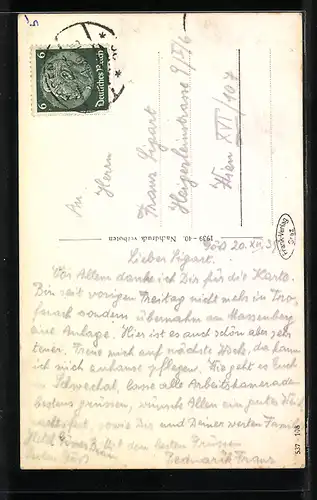 Deutsches Reich
6 6
An Herrn
Franz Sigart
Heigerleinstrasse 9/II/6
Wien XVI/107
1939 - 40. Nachdruck verboten
Frank-Verlag Graz
20. XII. 39
Lieber Sigart.
Vor Allem danke ich Dir für die Karte.
Bin seit vorigen Freitag nicht mehr in Tro
sondern übernahm am Massenberg
eine Anlage. Hier ist es auch schön aber sehr
teuer. Freue mich auf nächste Woche, da kann
ich mich zuhause pflegen. Wie geht es Euch
in Schwechat, lasse alle Arbeitskameraden
bestens grüssen, wünsche Allen ein gutes
sowie Dir und Deiner werten Famili
Hotel Mit den besten Grüssen
Franz
537 - 108